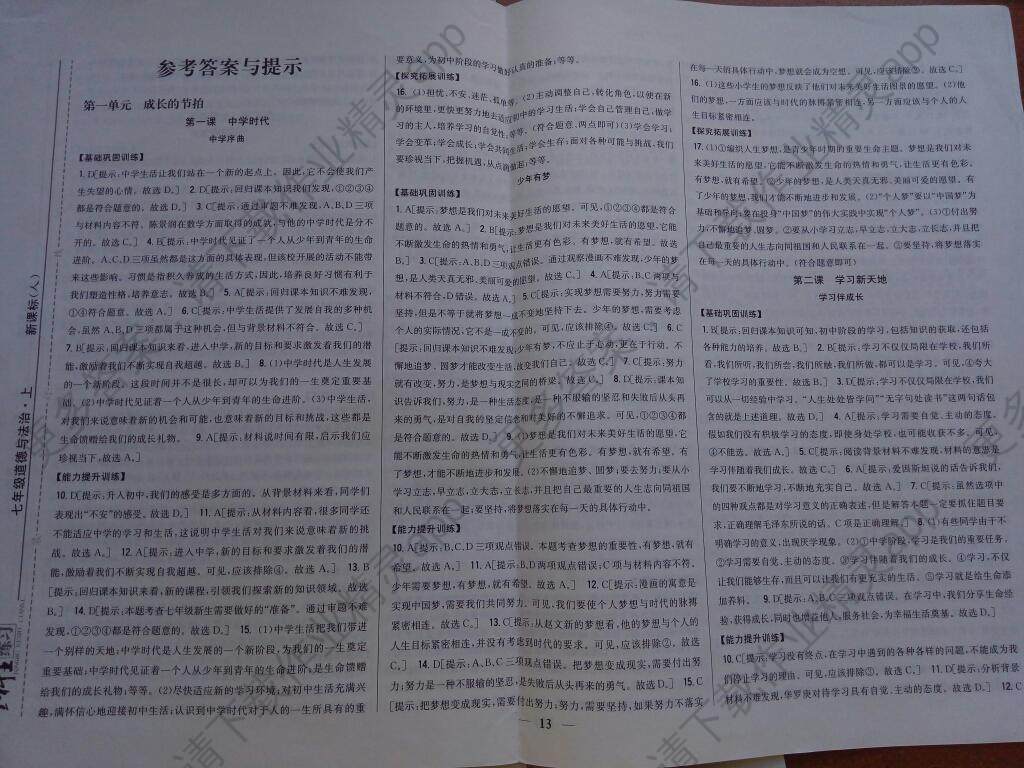 参考答案与提示
第一单元 成长的节拍
第一课 中学时代
中学序曲
【基础巩固训练】
1. D[提示:中学生活让我们站在一个新的起点上。因此,它不会使我们产
生失望的心情。故选D。] 2. D[提示:回归本课知识我们发现,①②③④
都是符合题意的。故选D。] 3. C[提示:通过审题不难发现,A、B、D三项
与材料内容不符。陈景润在数学方面取得的成就,与他的中学时代是分不
开的。故选C。] 4. B[提示:中学时代见证了一个人从少年到青年的生命
进阶。A、C、D三项虽然都是这方面的具体表现,但该校开展的活动不能带
来这些影响。习惯是指积久养成的生活方式,因此,培养良好习惯有利于
我们塑造性格,培养意志。故选B。] 5. A[提示:回归本课知识不难发现,
①④符合题意。故选A。] 6. C[提示:中学生活提供了发展自我的多种机
会,虽然A、B、D三项都属于这种机会,但与背景材料不符合。故选C。]
7. B[提示:回归本课知识来看,进入中学,新的目标和要求激发着我们的潜
能,激励着我们不断实现自我超越。故选B。] 8. (1)中学时代是人生发展
的一个新阶段。这段时间并不是很长,却可以为我们的一生奠定重要基
础。(2)中学时代见证着一个人从少年到青年的生命进阶。(3)中学生活,
对我们来说意味着新的机会和可能,也意味着新的目标和挑战,这些都是
生命馈赠给我们的成长礼物。 9. A[提示:材料说时间有限,启示我们应
珍视当下,故选A。]
【能力提升训练】
10. D[提示:升入初中,我们的感受是多方面的。从背景材料来看,同学们
表现出“不安”的感受。故选D。] 11. A[提示:从材料内容看,很多同学还
不能适应中学的学习和生活,这说明中学生活对我们来说意味着新的挑
战。故选A。] 12. A[提示:进入中学,新的目标和要求激发着我们的潜
能,激励着我们不断实现自我超越。可见,应该排除④。故选A。] 13. B
[提示:回归本课知识来看,新的课程,引领我们探索新的知识领域。故选
B。] 14. D[提示:本题考查七年级新生需要做好的“准备”。通过审题不难
发现,①②③④都是符合题意的。故选D。] 15. (1)中学生活把我们带进
一个别样的天地;中学时代是人生发展的一个新阶段,为我们的一生奠定
重要基础;中学时代见证着一个人从少年到青年的生命进阶,是生命馈赠
给我们的成长礼物;等等。(2)尽快适应新的学习环境,对初中生活充满兴
趣,满怀信心地迎接初中生活;认识到中学时代对于人的一生所具有的重
要意义,为初中阶段的学习做好认真的准备;等等。
【探究拓展训练】
16. (1)担忧、不安、迷茫、孤单等。(2)主动调整自己,转化角色,以便在新
的环境里,更快更努力地去适应初中的学习生活;学会自己管理自己,做学
习的主人,培养学习的自觉性,等等。(符合题意、两点即可)(3)学会学习;
学会变革;学会成长;学会共同生活;学会生存;面对各种可能与挑战,我们
要珍视当下,把握机遇,从点滴做起;等等。
少年有梦
【基础巩固训练】
1. A[提示:梦想是我们对未来美好生活的愿望。可见,①②③④都是符合
题意的。故选A。] 2. B[提示:梦想是我们对未来美好生活的愿望,它能
不断激发生命的热情和勇气,让生活更有色彩。有梦想,就有希望。故选
B。] 3. C[提示:A、B、D三项观点错误。通过观察漫画不难发现,少年的梦
想,是人类天真无邪、美丽可爱的愿望。故选C。] 4. A[提示:B、C两项与
材料不符合,D错误。故选A。] 5. C[提示:实现梦想需要努力,努力需要
坚持,但是不等于就将梦想一成不变地坚持下去。少年的梦想,需要考虑
个人的实际情况,它不是一成不变的,可见,应该排除④。故选C。] 6. C
[提示:回归本课知识不难发现,少年有梦,不应止于心动,更在于行动。不
懈地追梦、圆梦才能改变生活,改变我们自己。故选C。] 7. C[提示:努力
就有改变,努力,是梦想与现实之间的桥梁。故选C。] 8. D[提示:课本知
识告诉我们,努力,是一种生活态度,是一种不服输的坚忍和失败后从头再
来的勇气,是对自我的坚定信念和对美好的不懈追求。可见,①②③④都
是符合题意的。故选D。] 9. (1)梦想是我们对未来美好生活的愿望,它
能不断激发生命的热情和勇气,让生活更有色彩。有梦想,就有希望。有
了梦想,才能不断地进步和发展。(2)不懈地追梦、圆梦;要去努力;要从小
学习立志,早立志,立大志,立长志,并且把自己最重要的人生志向同祖国
和人民联系在一起;要坚持,将梦想落实在每一天的具体行动中。
【能力提升训练】
10. A[提示:B、C、D三项观点错误。本题考查梦想的重要性,有梦想,就有
希望。故选A。] 11. A[提示:B、D两项观点错误;C项与材料内容不符。
少年需要梦想,有梦想,就有希望。故选A。] 12. C[提示:漫画的寓意是
实现中国梦,需要我们共同努力。可见,我们要使个人梦想与时代的脉搏
紧密相连。故选C。] 13. C[提示:从赵文新的梦想看,他的梦想与个人的
人生目标紧密相连,并没有考虑到时代的要求。可见,应该排除②。故选
C。] 14. D[提示:A、B、C三项观点错误。把梦想变成现实,需要付出努
力;努力,是一种不服输的坚忍,是失败后从头再来的勇气。故选D。] 15. C
[提示:把梦想变成现实,需要付出努力;努力,需要坚持,如果努力不落实
在每一天的具体行动中,梦想就会成为空想。可见,应该排除③。故选C。]
16. (1)这些小学生的梦想反映了他们对未来美好生活图景的愿望。(2)他
们的梦想,一方面应该与时代的脉搏紧密相连,另一方面应该与个人的人
生目标紧密相连。
【探究拓展训练】
17. (1)①编织人生梦想,是青少年时期的重要生命主题。梦想是我们对未
来美好生活的愿望,它能不断激发生命的热情和勇气,让生活更有色彩。
有梦想,就有希望。②少年的梦想,是人类天真无邪、美丽可爱的愿望。有
了少年的梦想,我们才能不断地进步和发展。(2)“个人梦”要以“中国梦”为
基础和导向;要在投身“中国梦”的伟大实践中实现“个人梦”。(3)①付出努
力,不懈地追梦、圆梦。②要从小学习立志,早立志,立大志,立长志,并且把
自己最重要的人生志向同祖国和人民联系在一起。③要坚持,将梦想落实
在每一天的具体行动中。(符合题意即可)
第二课 学习新天地
学习伴成长
【基础巩固训练】
1. B[提示:回归本课知识可知,初中阶段的学习,包括知识的获取,还包括
各种能力的培养。故选B。] 2. B[提示:学习不仅仅局限在学校,我们所
看,我们所听,我们所尝,我们所触,我们所做,都可以是学习。可见,④夸大
了学校学习的重要性。故选B。] 3. D[提示:学习不仅仅局限在学校,我们
可以从一切经验中学习。“人生处处皆学问”“无字句处读书”这两句话包
含的就是上述道理。故选D。] 4. A[提示:学习需要自觉、主动的态度。
假如我们没有积极学习的态度,即使身处学校,也可能收获不多。可见,
④不能选。故选A。] 5. C[提示:阅读背景材料不难发现,材料的意思是
学习伴随着我们成长。故选C。] 6. A[提示:爱因斯坦说的话告诉我们,
我们要不断地学习,不断地充实自己。故选A。] 7. C[提示:虽然选项中
的四种观点都是对学习意义的正确表述,但是解答本题一定要抓住题目要
求,正确理解毛泽东所说的话。C项是正确理解。] 8. (1)有些同学由于不
明确学习的意义,出现厌学现象。(2)①中学阶段,学习是我们的重要任务。
②学习需要自觉、主动的态度。③学习伴随着我们的成长。④学习,不仅
让我们能够生存,而且可以让我们有更充实的生活。⑤学习就是给生命添
加养料。 9. D[提示:A、B、C三项观点错误。在学习中,我们分享生命经
验,获得成长,同时也增益他人,服务社会,为幸福生活奠基。故选D。]
【能力提升训练】
10. C[提示:学习没有终点,在学习中遇到的各种各样的问题,不能成为我
们停止学习的理由。可见,应该排除③。故选C。] 11. D[提示:分析背景
材料不难发现,华罗庚对待学习具有自觉、主动的态度。故选D。] 12. C
— 13 —
七年级道德与法治·上
新课标(人)